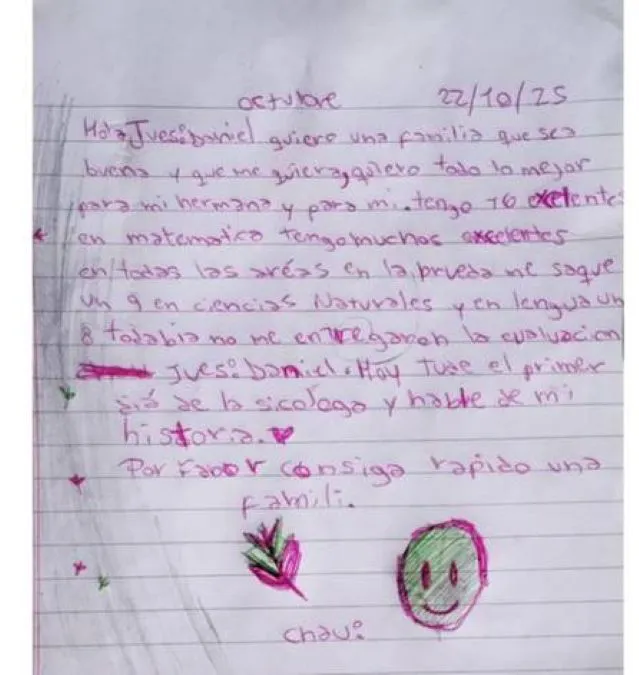 octubre 22/10/25
Hola Jues: Daniel quiero una familia que sea
buena y que me quiera, quiero todo lo mejor
para mi hermana y para mi. tengo 16 exelentes
en matematica tengo muchos excelentes
en todas las aréas en la prueba me saque
un 9 en ciencias Naturales y en lengua un
8 todabia no me entregaron la evaluacion
Jues: Daniel. Hoy tube el primer
diá de la sicologa y hable de mi
historia.
Por Fabor consiga rapido una
Famili.
chau: